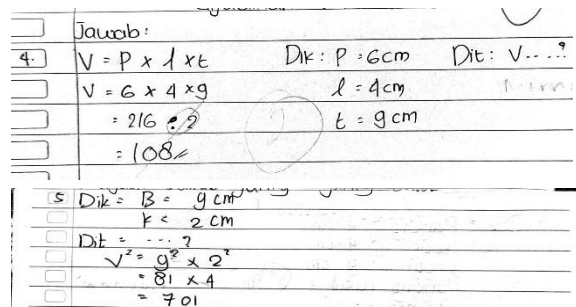 Jawab:
4. V = P x l x t Dik: P = 6cm Dit: V....?
V = 6 x 4 x 9 l = 4cm
= 216 : 2 t = 9 cm
= 108
5 Dik = B = 9 cm
k = 2 cm
Dit = .... ?
V² = 9² x 2²
= 81 x 4
= 701